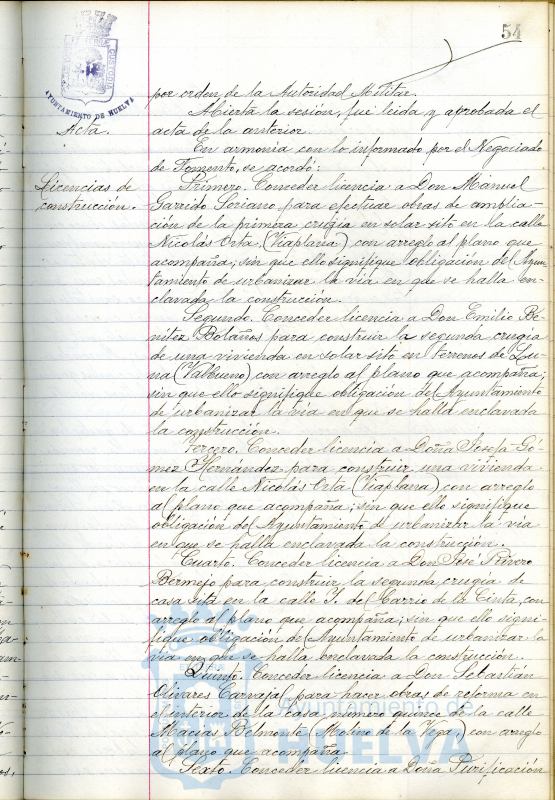 54
AYUNTAMIENTO DE HUELVA
por orden de la Autoridad Militar.
Abierta la sesión, fue leida y aprobada el
Acta.
acta de la anterior.
En armonia con lo informado por el Negociado
de Fomento, se acordó:
Licencias de
construcción.
Primero. Conceder licencia a Don Manuel
Garrido Soriano para efectuar obras de amplia-
ción de la primera crugia en solar sito en la calle
Nicolás Orta (Viaplana) con arreglo al plano que
acompaña; sin que ello signifique obligación del Ayun-
tamiento de urbanizar la via en que se halla en-
clavada la construcción.
Segundo. Conceder licencia a Don Emilio Be-
nitez Bolaños para construir la segunda crugia
de una vivienda en solar sito en terrenos de Lu-
na (Valbueno) con arreglo al plano que acompaña;
sin que ello signifique obligación del Ayuntamiento
de urbanizar la via en que se halla enclavada
la construcción.
Tercero. Conceder licencia a Doña Josefa Gó-
mez Hernández para construir una vivienda
en la calle Nicolás Orta (Viaplana) con arreglo
al plano que acompaña; sin que ello signifique
obligación del Ayuntamiento de urbanizar la via
en que se halla enclavada la construcción.
Cuarto. Conceder licencia a Don José Rivero
Bermejo para construir la segunda crugia de
casa sita en la calle J. del Barrio de la Cinta, con
arreglo al plano que acompaña; sin que ello signi-
fique obligación del Ayuntamiento de urbanizar la
via en que se halla enclavada la construcción.
Quinto. Conceder licencia a Don Sebastián
Olivares Carvajal para hacer obras de reforma en
el interior de la casa número quince de la calle
Macias Belmonte (Molino de la Vega) con arreglo
al plano que acompaña.
Sexto. Conceder licencia a Doña Purificación
Ayuntamiento de
HUELVA